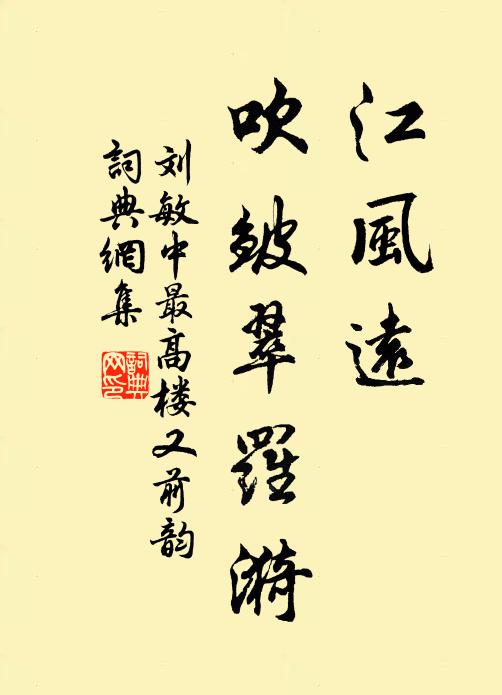 江風遠
吹皴翠羅漪
刘敏中最高楼又前韵
詞典網集
詞典网印